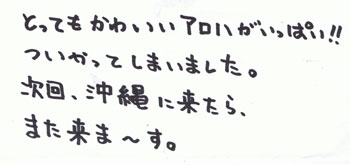 とってもかわいいアロハがいっぱい!!
ついかってしまいました。
次回、沖縄に来たら、
また来ま～す。